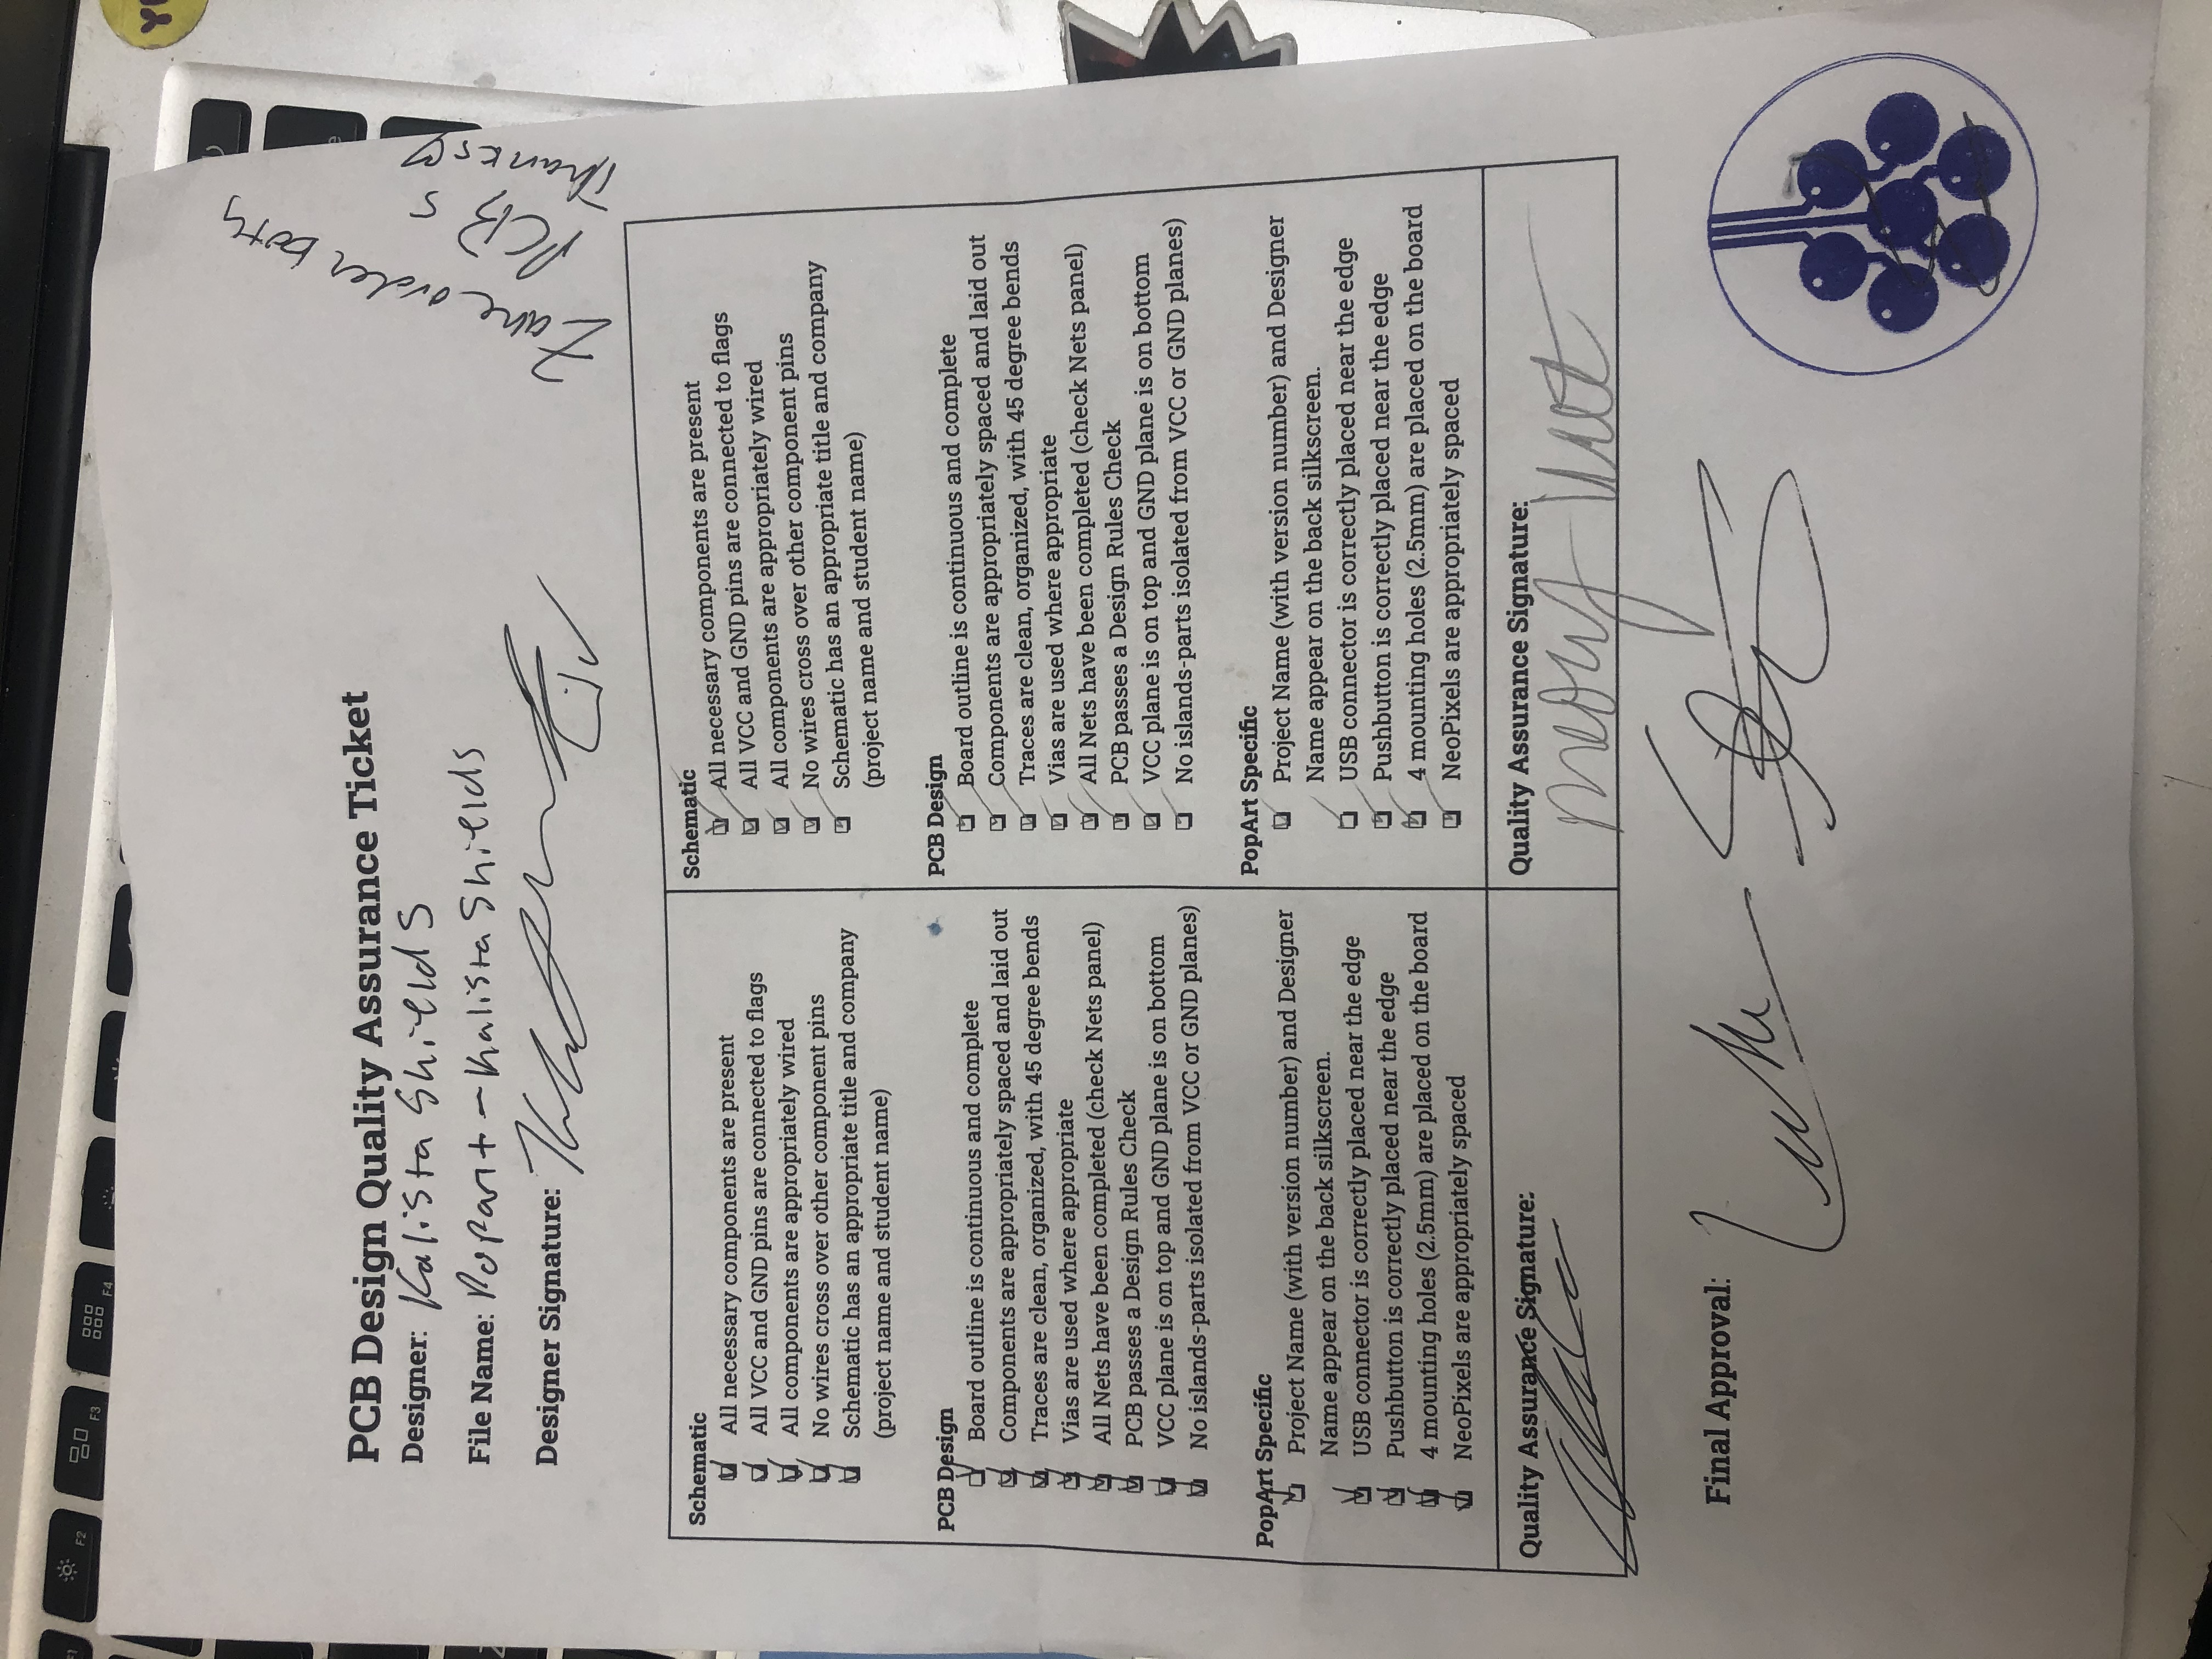 F2
F3
F4
PCB Design Quality Assurance Ticket
Designer: Kalista Shields
File Name: PopArt - Kalista Shields
Designer Signature:
Zane order both
PCBs
Thanks
Schematic
All necessary components are present
All VCC and GND pins are connected to flags
All components are appropriately wired
No wires cross over other component pins
Schematic has an appropriate title and company
(project name and student name)
PCB Design
Board outline is continuous and complete
Components are appropriately spaced and laid out
Traces are clean, organized, with 45 degree bends
Vias are used where appropriate
All Nets have been completed (check Nets panel)
PCB passes a Design Rules Check
VCC plane is on top and GND plane is on bottom
No islands-parts isolated from VCC or GND planes)
PopArt Specific
Project Name (with version number) and Designer
Name appear on the back silkscreen.
USB connector is correctly placed near the edge
Pushbutton is correctly placed near the edge
4 mounting holes (2.5mm) are placed on the board
NeoPixels are appropriately spaced
Quality Assurance Signature:
Schematic
All necessary components are present
All VCC and GND pins are connected to flags
All components are appropriately wired
No wires cross over other component pins
Schematic has an appropriate title and company
(project name and student name)
PCB Design
Board outline is continuous and complete
Components are appropriately spaced and laid out
Traces are clean, organized, with 45 degree bends
Vias are used where appropriate
All Nets have been completed (check Nets panel)
PCB passes a Design Rules Check
VCC plane is on top and GND plane is on bottom
No islands-parts isolated from VCC or GND planes)
PopArt Specific
Project Name (with version number) and Designer
Name appear on the back silkscreen.
USB connector is correctly placed near the edge
Pushbutton is correctly placed near the edge
4 mounting holes (2.5mm) are placed on the board
NeoPixels are appropriately spaced
Quality Assurance Signature:
Final Approval: Luke